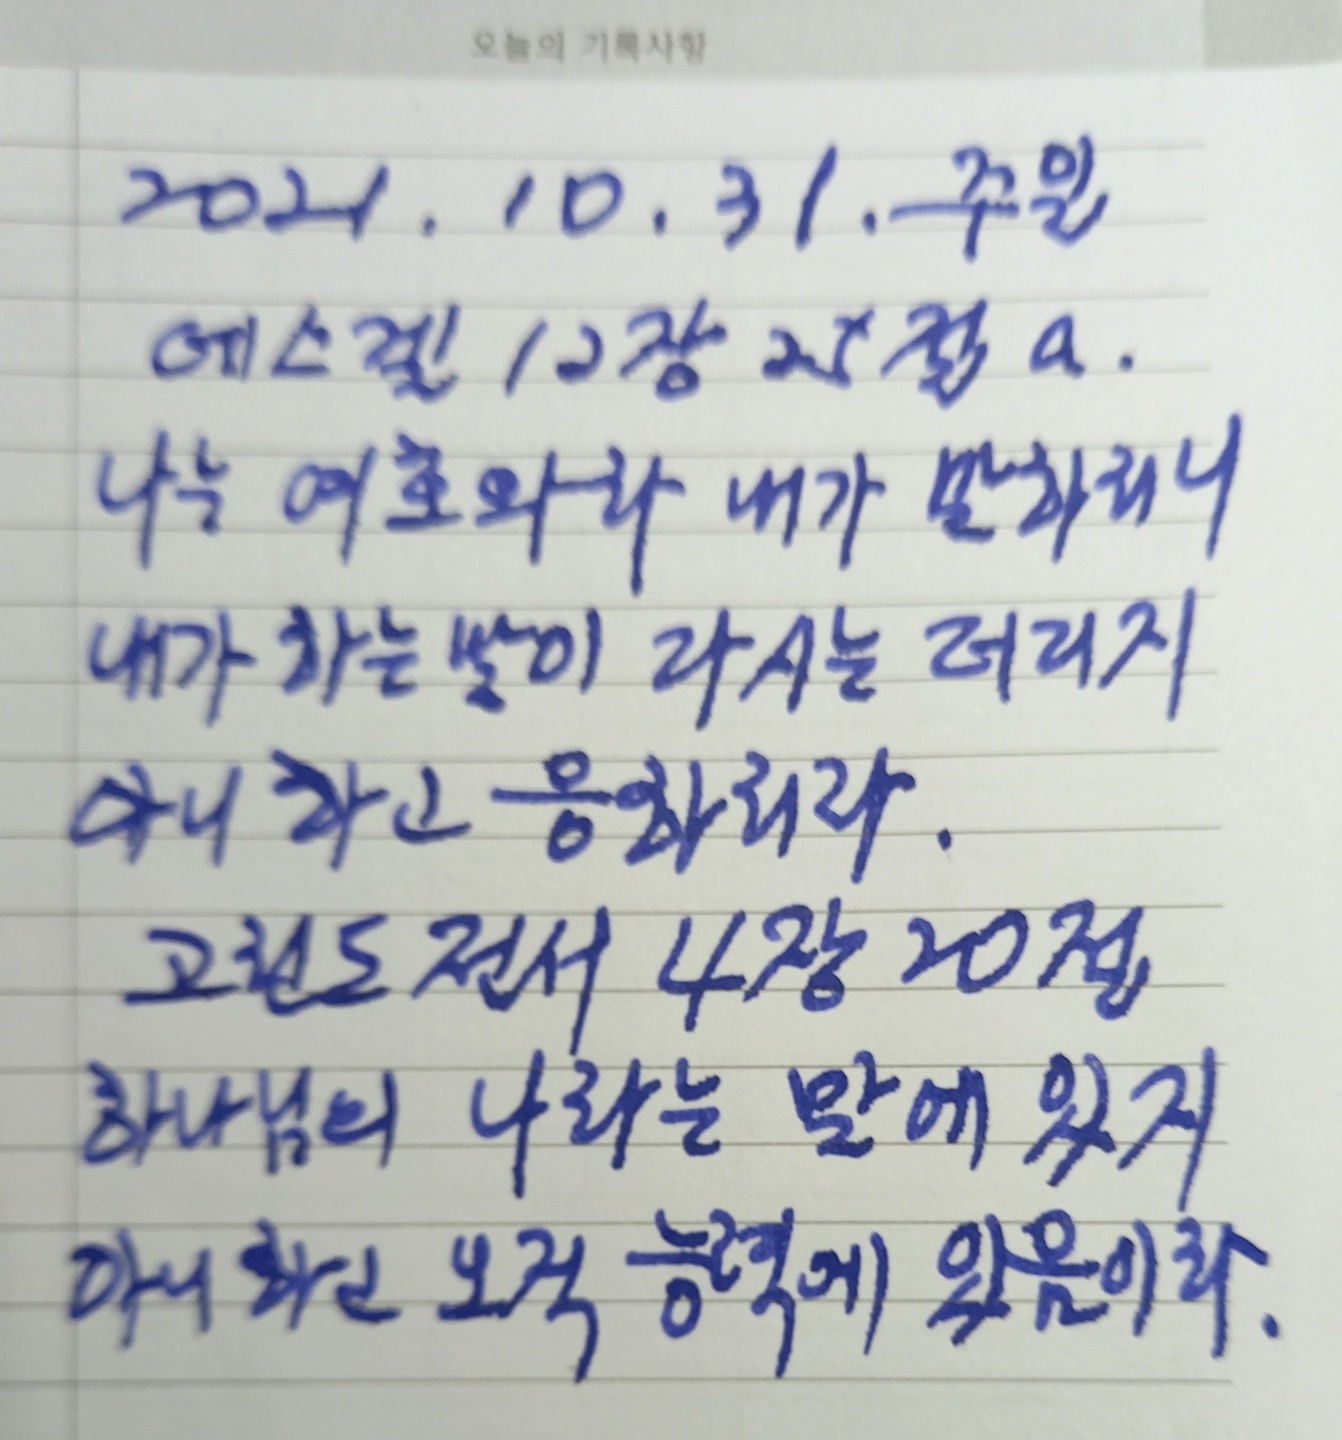 오늘의 기록사항
2021. 10. 31. 주일
에스겔 12장 25절 a.
나는 여호와라 내가 말하리니
내가 하는 말이 다시는 더디지
아니하고 응하리라.
고린도전서 4장 20절
하나님의 나라는 말에 있지
아니하고 오직 능력에 있음이라.